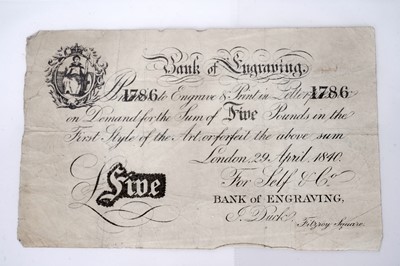 Bank of Engraving.
1786 to Engrave & Print in Letter 1786
on Demand for the Sum of Five Pounds in the
First Style of the Art, or forfeit the above sum
London, 29 April, 1840.
£Five For Self & Co
BANK OF ENGRAVING,
J. Duck
Fitzroy Square.